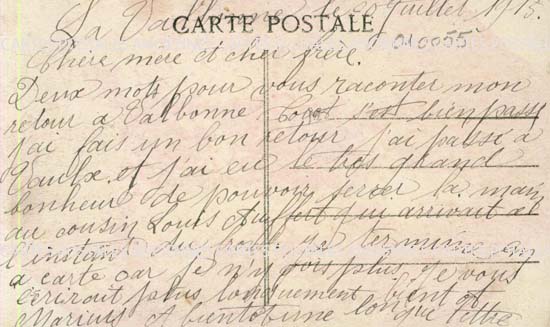 La Valbonne, le 20 Juillet 1915.
CARTE POSTALE
010055
Chère mère et cher frère.
Deux mots pour vous raconter mon
retour a Valbonne tout s'est bien passé
j'ai fais un bon retour j'ai passé à
Vaulx et j'ai eu le très grand
bonheur de pouvoir serrer la main
au cousin Louis qui arrivait at
l'instan du je termine
a carte car je n'y vois plus je vous
écrirait plus longuement bientot
Marius A bientot une longue lettre